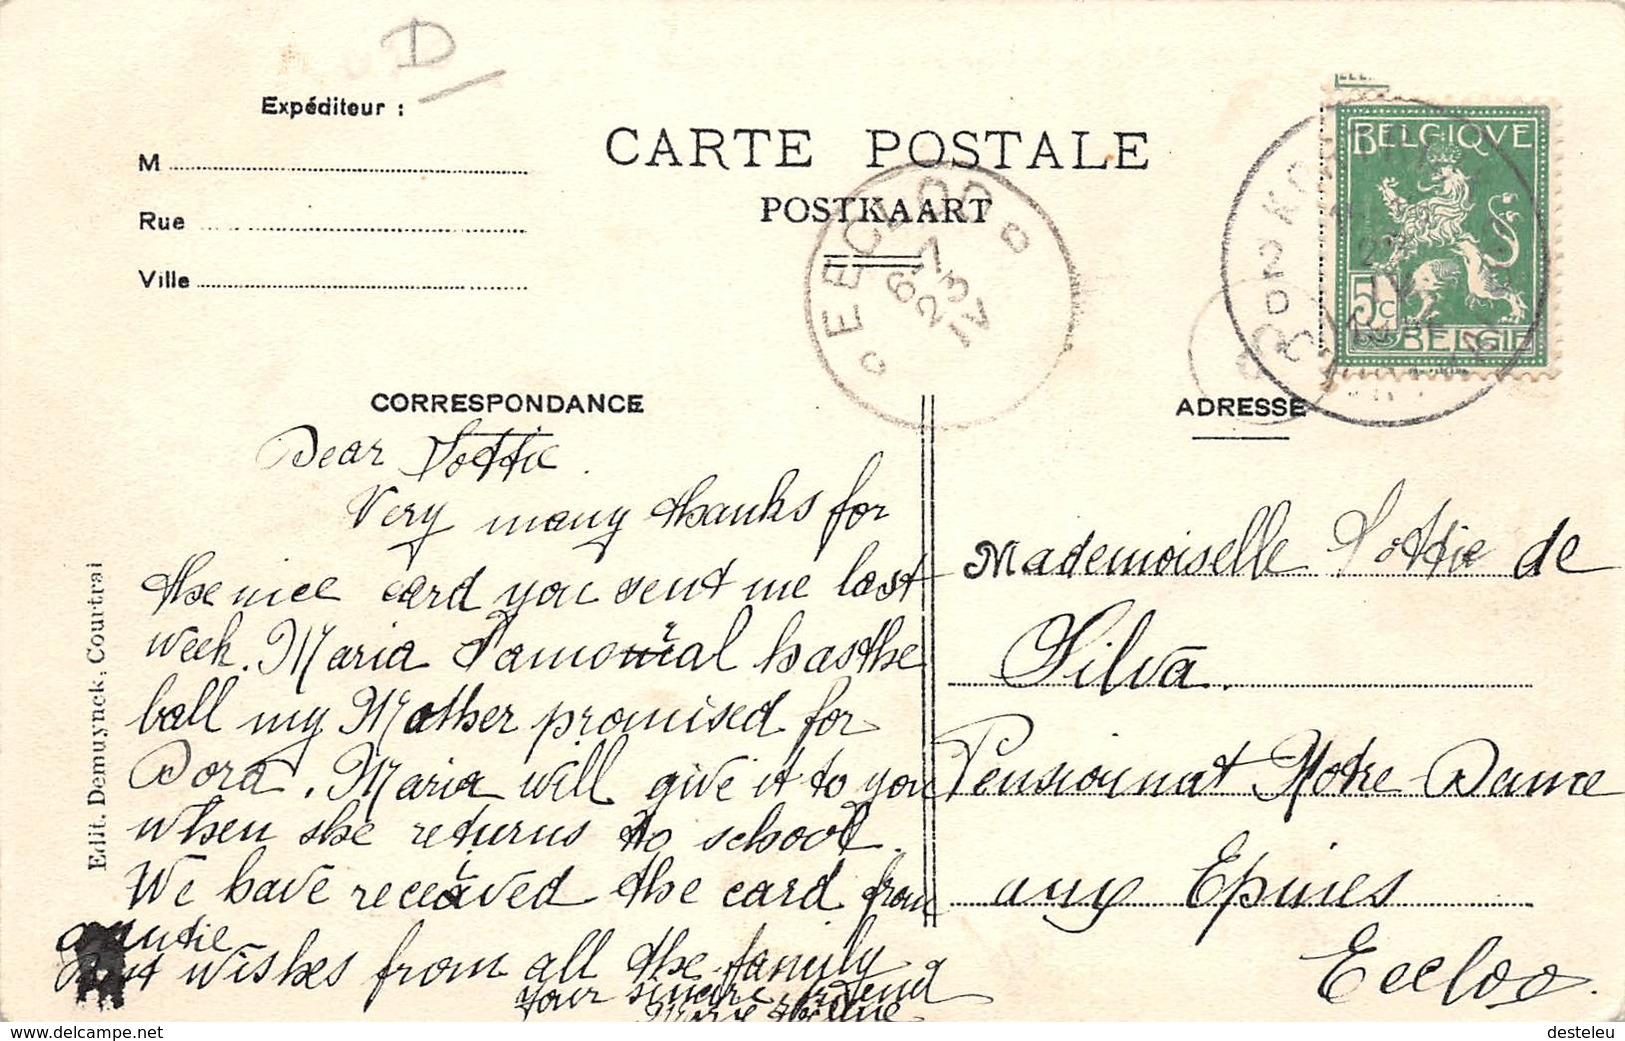 D
Expéditeur :
M
Rue
Ville
CARTE POSTALE
POSTKAART
EECLOO
6-7
23
IV
BELGIQVE
5c
BELGIE
CORRESPONDANCE
ADRESSE
Dear Lottie.
Very many thanks for
the nice card you sent me last
week. Maria has the
ball my Mother promised for
Dora. Maria will give it to you
when she returns to school.
We have received the card from
auntie
Best wishes from all the family
your sincere friend
Marie
Mademoiselle Lottie de
Silva.
Pensionnat Notre-Dame
any Epines
Eecloo.
Edit. Demuynck, Courtrai
www.delcampe.net
desteleu